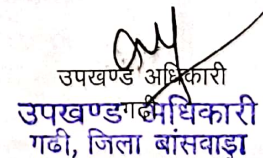 उपखण्ड अधिकारी
गढी
उपखण्ड अधिकारी
गढी, जिला बांसवाड़ा